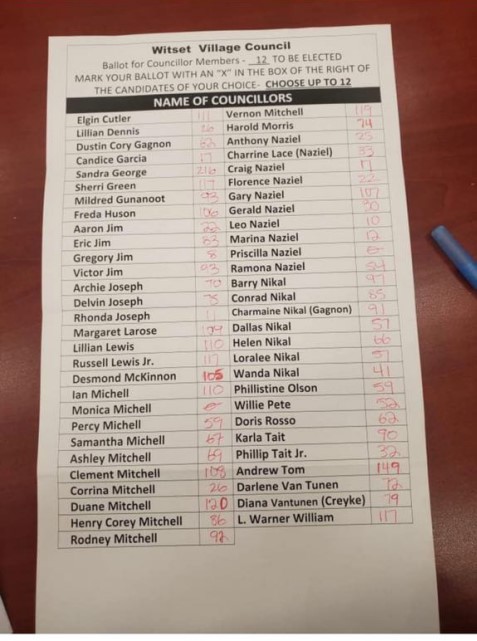 Witset Village Council
Ballot for Councillor Members - 12 TO BE ELECTED
MARK YOUR BALLOT WITH AN "X" IN THE BOX OF THE RIGHT OF
THE CANDIDATES OF YOUR CHOICE- CHOOSE UP TO 12
NAME OF COUNCILLORS
Elgin Cutler 111 Vernon Mitchell 119
Lillian Dennis 26 Harold Morris 74
Dustin Cory Gagnon 62 Anthony Naziel 25
Candice Garcia 17 Charrine Lace (Naziel) 33
Sandra George 216 Craig Naziel 17
Sherri Green 117 Florence Naziel 22
Mildred Gunanoot 93 Gary Naziel 107
Freda Huson Gerald Naziel 30
Aaron Jim Leo Naziel 10
Eric Jim 83 Marina Naziel 12
Gregory Jim 8 Priscilla Naziel
Victor Jim 93 Ramona Naziel 54
Archie Joseph 70 Barry Nikal 97
Delvin Joseph 75 Conrad Nikal 85
Rhonda Joseph 11 Charmaine Nikal (Gagnon) 91
Margaret Larose Dallas Nikal 57
Lillian Lewis 110 Helen Nikal 66
Russell Lewis Jr. 117 Loralee Nikal 51
Desmond McKinnon 105 Wanda Nikal 41
Ian Michell 110 Phillistine Olson 59
Monica Michell Willie Pete 52
Percy Michell 59 Doris Rosso 62
Samantha Michell 67 Karla Tait 90
Ashley Mitchell 69 Phillip Tait Jr. 32
Clement Mitchell 108 Andrew Tom 149
Corrina Mitchell 26 Darlene Van Tunen 72
Duane Mitchell 120 Diana Vantunen (Creyke) 79
Henry Corey Mitchell 86 L. Warner William 117
Rodney Mitchell 92